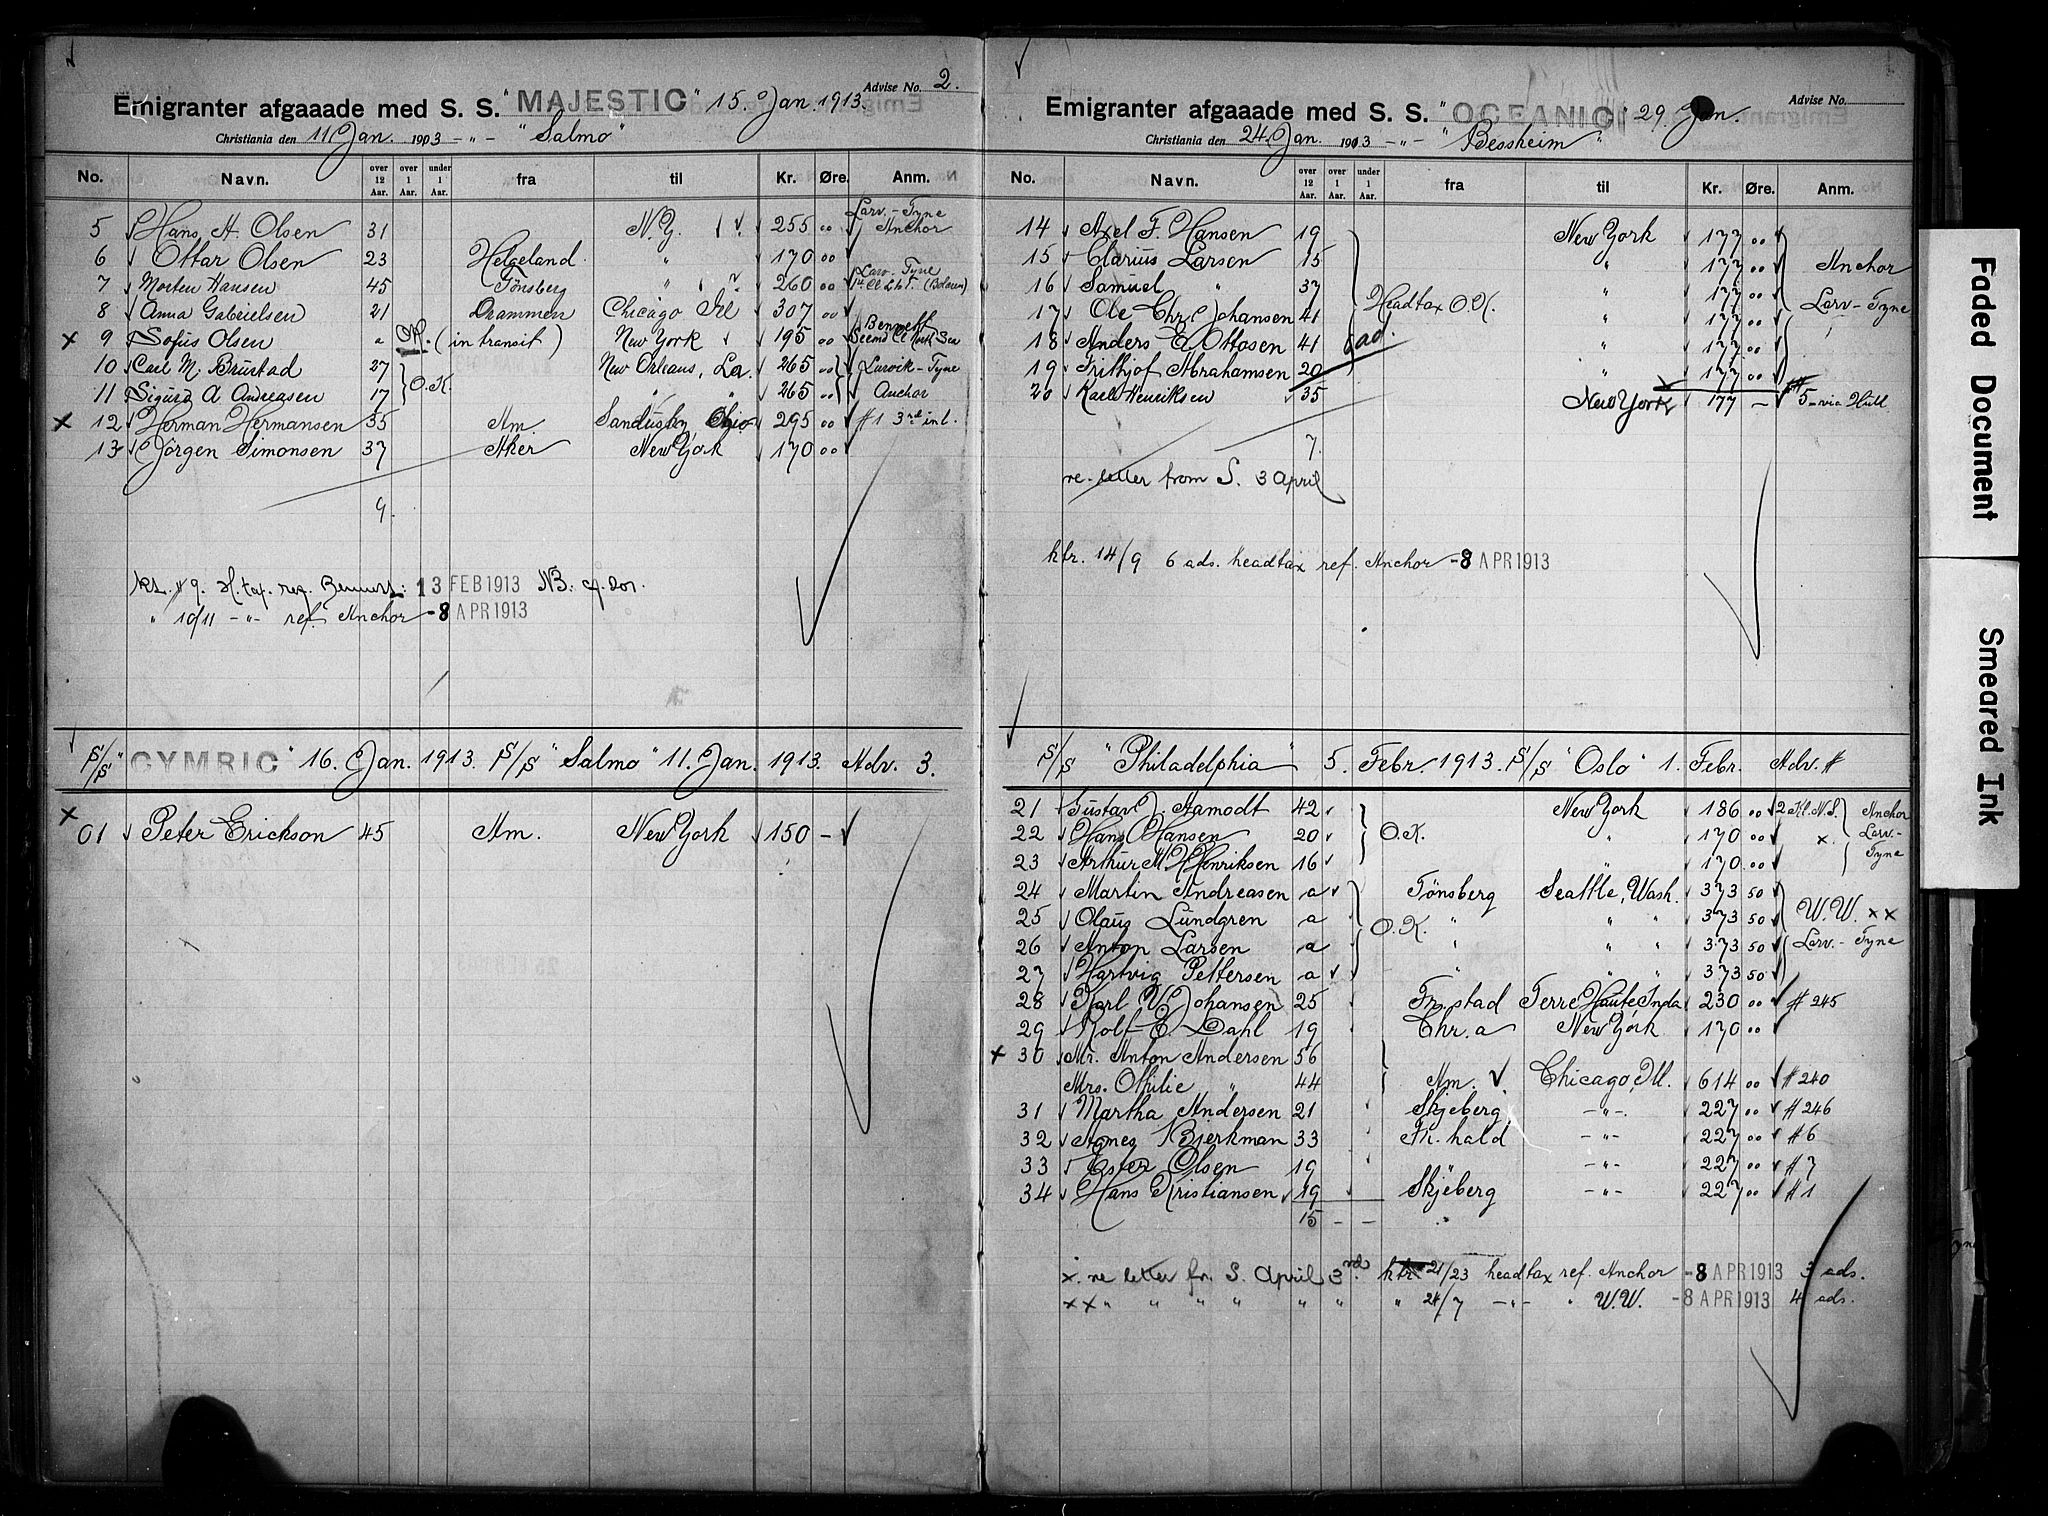 Emigranter afgaaade med S. S. "MAJESTIC" 15. Jan. 1913. Advise No. 2.
Christiania den 11 Jan. 1903 - „ - "Salmo"
No. Navn. over 12 Aar. over 1 Aar. under 1 Aar. fra til Kr. Øre. Anm.
5 Hans A. Olsen 31 N.Y. 255 00 Larv. - Tyne Anchor
6 Ottar Olsen 23 Helgeland „ 170 00
7 Morten Hansen 45 Tönsberg „ 260 00 Larv. Tyne
8 Anna Gabrielsen 21 Drammen Chicago Ill 307 00
x 9 Sofus Olsen a (in transit) New York 195 00 Bennett
10 Carl M. Brustad 27 O.K. New Orleans, La. 265 00 Larvik - Tyne
11 Sigurd A. Andreasen 17 „ „ 265 00 Anchor
x 12 Herman Hermansen 35 Am. Sandusky Ohio 295 00 #1 3rd int.
13 Jörgen Simonsen 37 Aker New York 170 00
9.
kr. # 9. H. tax. ref. Bennett: 13 FEB 1913 NB. cf. 201.
„ 10/11 - „ - ref. Anchor -8 APR 1913
S/S "CYMRIC" 16. Jan. 1913. S/S "Salmo" 11. Jan. 1913. Adv. 3.
x 01 Peter Erickson 45 Am. New York 150 -
Emigranter afgaaade med S. S. "OCEANIC" 29. Jan. Advise No.
Christiania den 24 Jan. 1913 - „ - "Bessheim"
No. Navn. over 12 Aar. over 1 Aar. under 1 Aar. fra til Kr. Øre. Anm.
14 Axel F. Hansen 19 New York 177 00
15 Clarius Larsen 15 „ 177 00 Anchor
16 Samuel „ 37 „ 177 00
17 Ole Chr. Johansen 41 Headtax O.K. „ 177 00 Larv - Tyne
18 Anders E. Ottosen 41 6 ad. „ 177 00
19 Frithjof Abrahamsen 20 „ 177 00
20 Karl Henriksen 35 New York 177 - # 5 - via Hull
7.
re - letter from S. 3 April
ktr. 14/9 6 ads. headtax ref. Anchor -8 APR 1913
S/S "Philadelphia" 5. Febr. 1913. S/S "Oslo" 1. Febr. Adv. #
21 Gustav J. Aamodt 42 New York 186 00 2 Kl. N.S. Anchor
22 Hans Hansen 20 O.K. „ 170 00 x. Larv. -
23 Arthur M. Henriksen 16 „ 170 00 Tyne
24 Martin Andreasen a Tönsberg Seattle, Wash. 373 50
25 Olaus Lundgren a O.K. „ „ „ 373 50 W.W. xx
26 Anton Larsen a „ „ „ 373 50 Larv. - Tyne
27 Hartvig Pettersen a „ „ „ 373 50
28 Karl W. Johansen 25 Fr. stad Terre Haute Inda. 230 00 # 245
29 Rolf E. Dahl 19 Chr. a New York 170 00
x 30 Mr. Anton Andersen 56
Mrs. Othilie „ 44 Am. Chicago, Ill. 614 00 # 240
31 Martha Andersen 21 Skjeberg - „ - 227 00 # 246
32 Agnes Bjerkman 33 Fr. hald - „ - 227 00 # 6
33 Ester Olsen 19 - „ - 227 00 # 7
34 Hans Kristiansen 19 Skjeberg - „ - 227 00 # 1
15 - -
x. re letter fr. S. April 3rd. ktr 21/23 headtax ref. Anchor -8 APR 1913 3 ads.
xx „ „ „ „ „ „ „ 24/7 - „ - „ W.W. -8 APR 1913 4 ads.
Faded Document
Smeared Ink